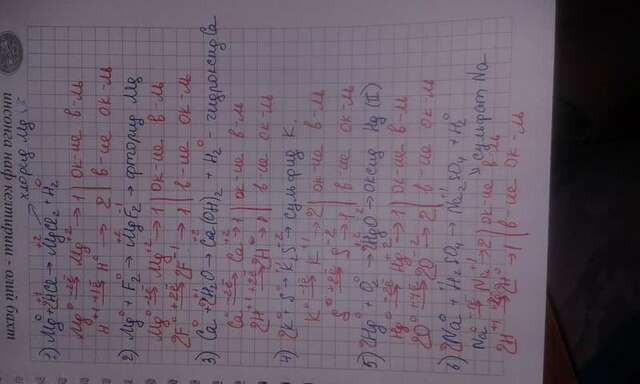 инсонга наф келтириш - олий бахт
хлорид Mg
1) Mg⁰ + 2HCl → MgCl₂ + H₂⁰
Mg⁰ -2ē → Mg⁺² → 1 | ок-ие в-ль
H⁺¹ +1ē → H⁰ → 2 | в-ие ок-ль
2) Mg⁰ + F₂⁰ → MgF₂ → фторид Mg
Mg⁰ -2ē → Mg⁺² → 1 | ок-ие в-ль
2F⁰ +2ē → 2F⁻¹ → 1 | в-ие ок-ль
3) Ca⁰ + 2H₂O → Ca(OH)₂ + H₂⁰ - гидроксид Ca
Ca⁰ -2ē → Ca⁺² → 1 | ок-ие в-ль
2H⁺¹ +2ē → 2H⁰ → 1 | в-ие ок-ль
4) 2K⁰ + S⁰ → K₂S → сульфид K.
K⁰ -1ē → K⁺¹ → 2 | ок-ие в-ль
S⁰ +2ē → S⁻² → 1 | в-ие ок-ль
5) 2Hg⁰ + O₂⁰ → 2HgO → оксид Hg (II)
Hg⁰ -2ē → Hg⁺² → 1 | ок-ие в-ль
2O⁰ → 2O → 2 | в-ие ок-ль
6) 2Na⁰ + H₂SO₄ → Na₂SO₄ + H₂⁰
сульфат Na
Na⁰ -1ē → Na⁺¹ → 2 | ок-ие в-ль
2H⁺¹ +2ē → 2H⁰ → 1 | в-ие ок-ль